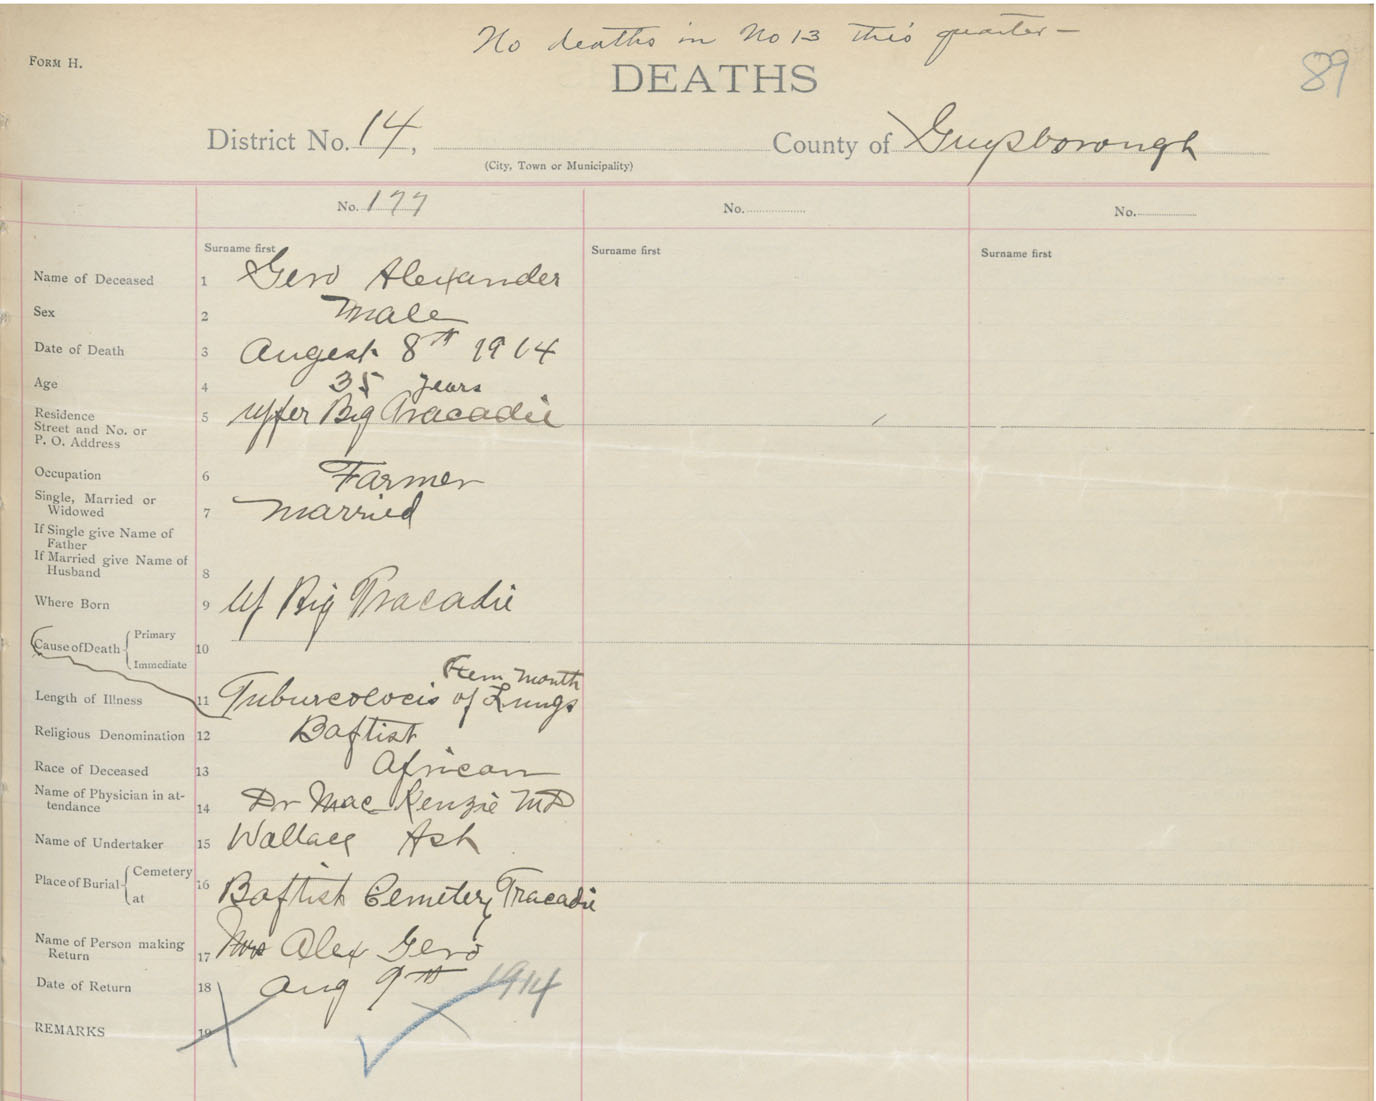 No deaths in No 13 this quarter -
FORM H.
DEATHS
89
District No. 14, County of Guysborough
(City, Town or Municipality)
No. 177 No. No.
Surname first Surname first Surname first
Name of Deceased 1 Gero Alexander
Sex 2 Male
Date of Death 3 Augest 8th 1914
Age 4 35 years
Residence
Street and No. or
P. O. Address 5 Upper Big Tracadie
Occupation 6 Farmer
Single, Married or
Widowed 7 Married
If Single give Name of
Father
If Married give Name of
Husband 8
Where Born 9 Up Big Tracadie
Cause of Death Primary
Immediate 10
month
Length of Illness 11 Tuburcolocis of Lungs
Religious Denomination 12 Baptist
Race of Deceased 13 African
Name of Physician in at-
tendance 14 Dr MacKenzie MD
Name of Undertaker 15 Wallace Ash
Place of Burial Cemetery
at 16 Baptist Cemetery Tracadie
Name of Person making
Return 17 Mrs Alex Gero
Date of Return 18 Aug 9th 1914
REMARKS 19